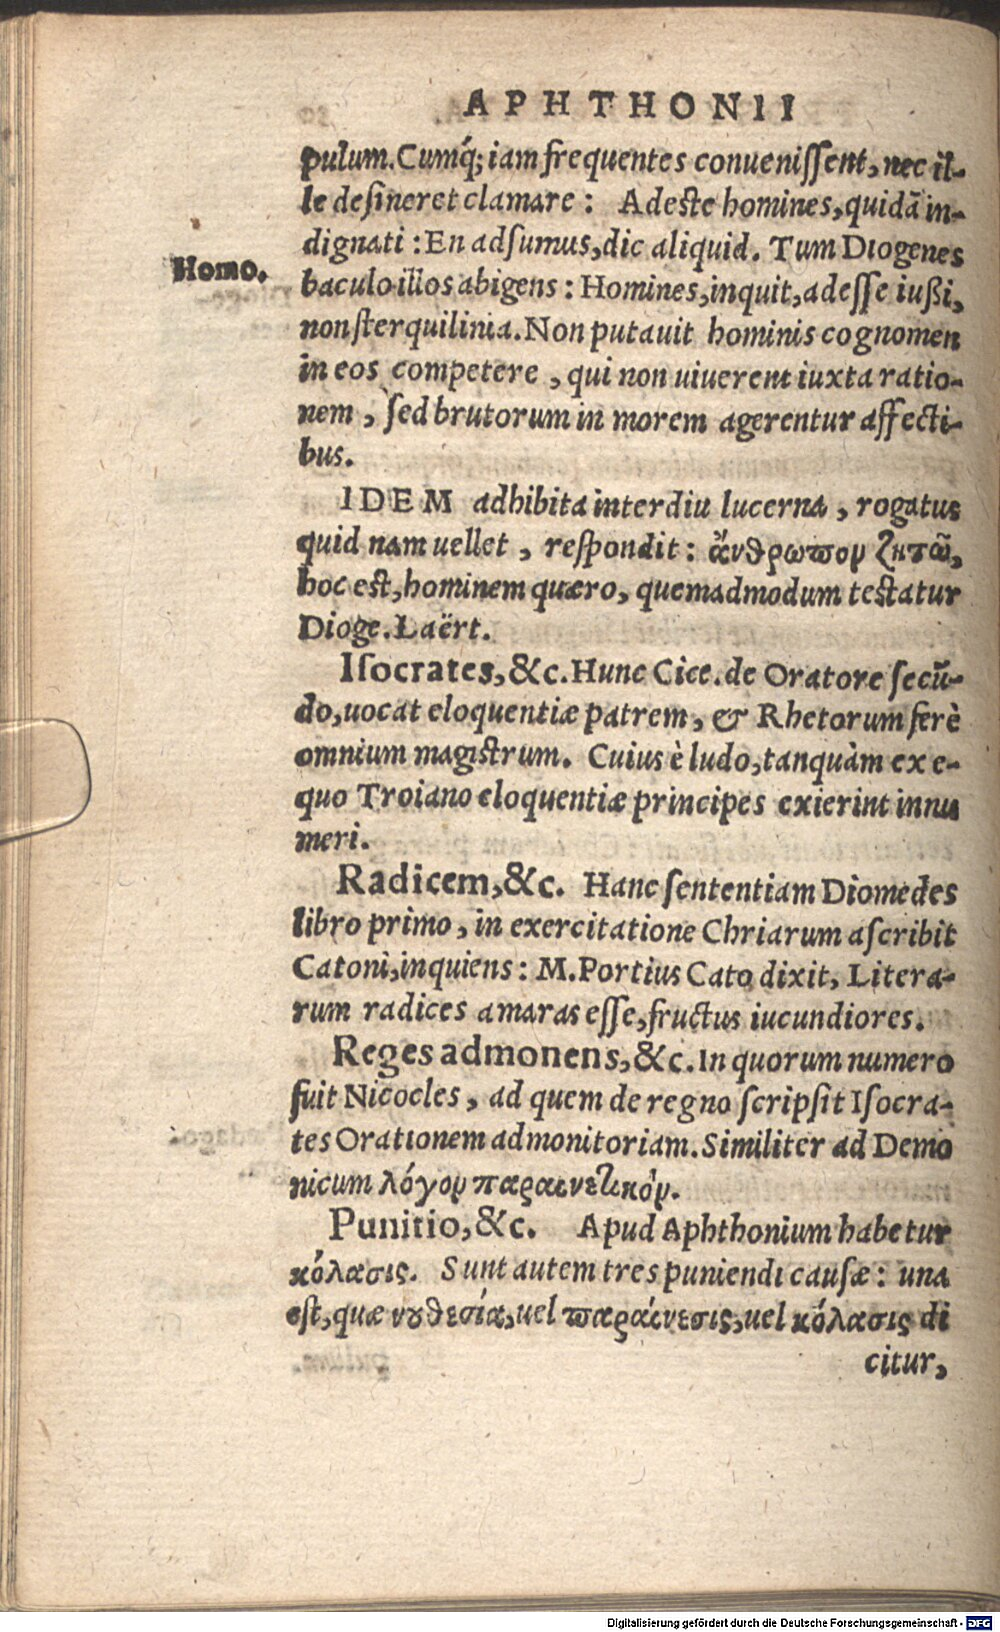 APHTHONII
pulum. Cumq́; iam frequentes conueniſſent, nec il-
le deſineret clamare: Adeſte homines, quidã in-
dignati: En adſumus, dic aliquid. Tum Diogenes
Homo.
baculo illos abigens: Homines, inquit, adeſſe iußi,
non ſterquilinia. Non putauit hominis cognomen
in eos competere, qui non uiuerent iuxta ratio-
nem, ſed brutorum in morem agerentur affecti-
bus.
IDEM adhibita interdiu lucerna, rogatus
quid nam uellet, reſpondit: ἄνθρωπον ζητῶ,
hoc eſt, hominem quæro, quemadmodum teſtatur
Dioge. Laërt.
Iſocrates, &c. Hunc Cice. de Oratore ſecũ-
do, uocat eloquentiæ patrem, & Rhetorum ferè
omnium magiſtrum. Cuius è ludo, tanquàm ex e-
quo Troiano eloquentiæ principes exierint innu
meri.
Radicem, &c. Hanc ſententiam Diomedes
libro primo, in exercitatione Chriarum aſcribit
Catoni, inquiens: M. Portius Cato dixit, Litera-
rum radices amaras eſſe, fructus iucundiores.
Reges admonens, &c. In quorum numero
fuit Nicocles, ad quem de regno ſcripſit Iſocra-
tes Orationem admonitoriam. Similiter ad Demo
nicum λόγον παραινετικόν.
Punitio, &c. Apud Aphthonium habetur
κόλασις. Sunt autem tres puniendi cauſæ: una
eſt, quæ νȣθεσία, uel παραίνεσις, uel κόλασις di
citur,
Digitalisierung gefördert durch die Deutsche Forschungsgemeinschaft - DFG